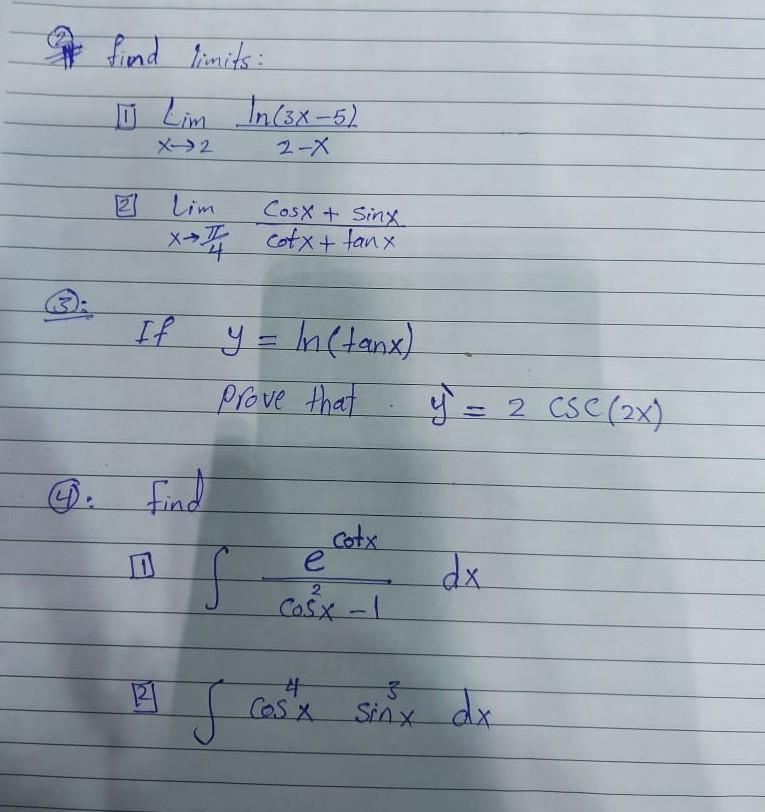 ② find limits:
1 Lim ln(3x-5)/(2-x)
x→2
2 Lim (cosx + sinx)/(cotx + tanx)
x→π/4
③:
If y = ln(tanx)
prove that y` = 2 csc(2x)
④: find
1 ∫ e^cotx/(cos²x - 1) dx
2 ∫ cos⁴x sin³x dx